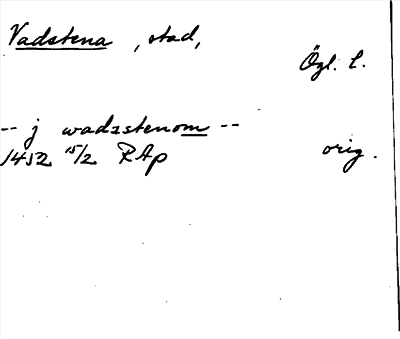 Vadstena, stad,
Ögl. l.
-- j wadzstenom --
1452 15/2 RAp orig.